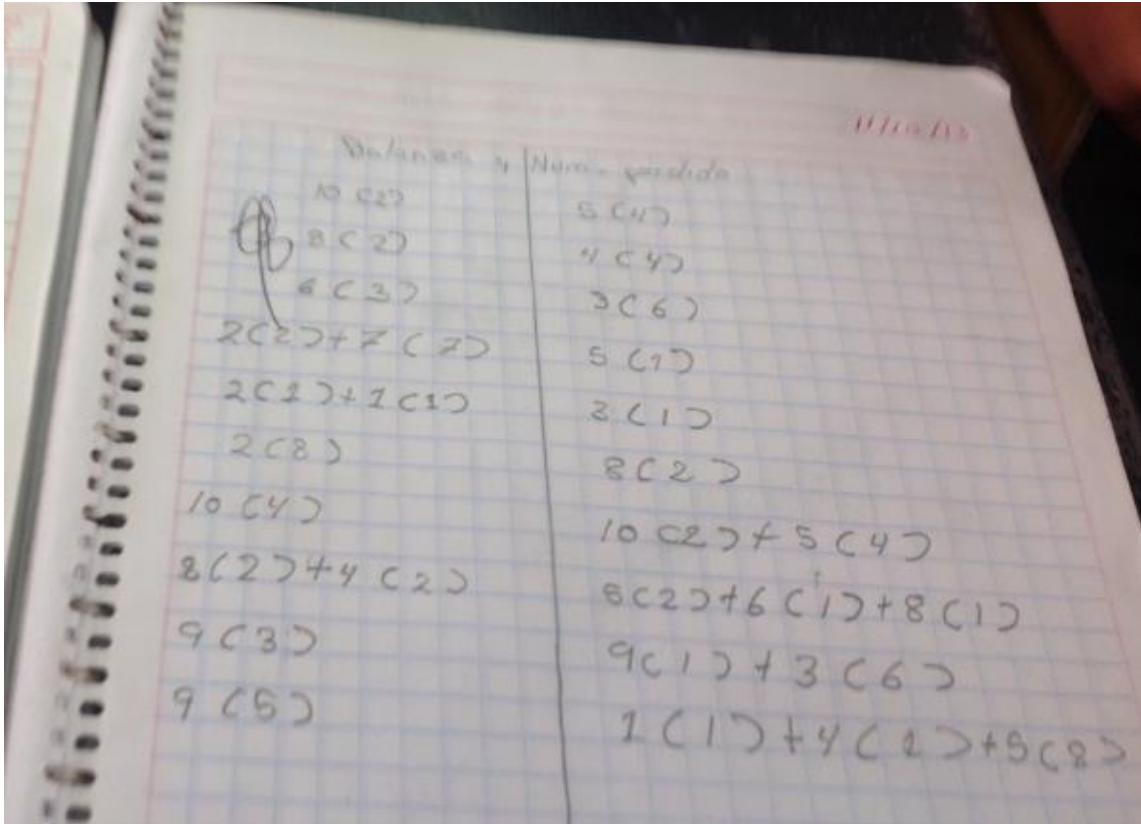 11/10/13
Balanza y Núm. perdido
10 (2) 5 (4)
8 (2) 4 (4)
6 (3) 3 (6)
2(2)+7 (7) 5 (1)
2(1)+1(1) 3 (1)
2(8) 8(2)
10 (4) 10 (2)+5(4)
8(2)+4(2) 5(2)+6(1)+8(1)
9(3) 9(1)+3(6)
9(5) 1(1)+4(1)+5(8)